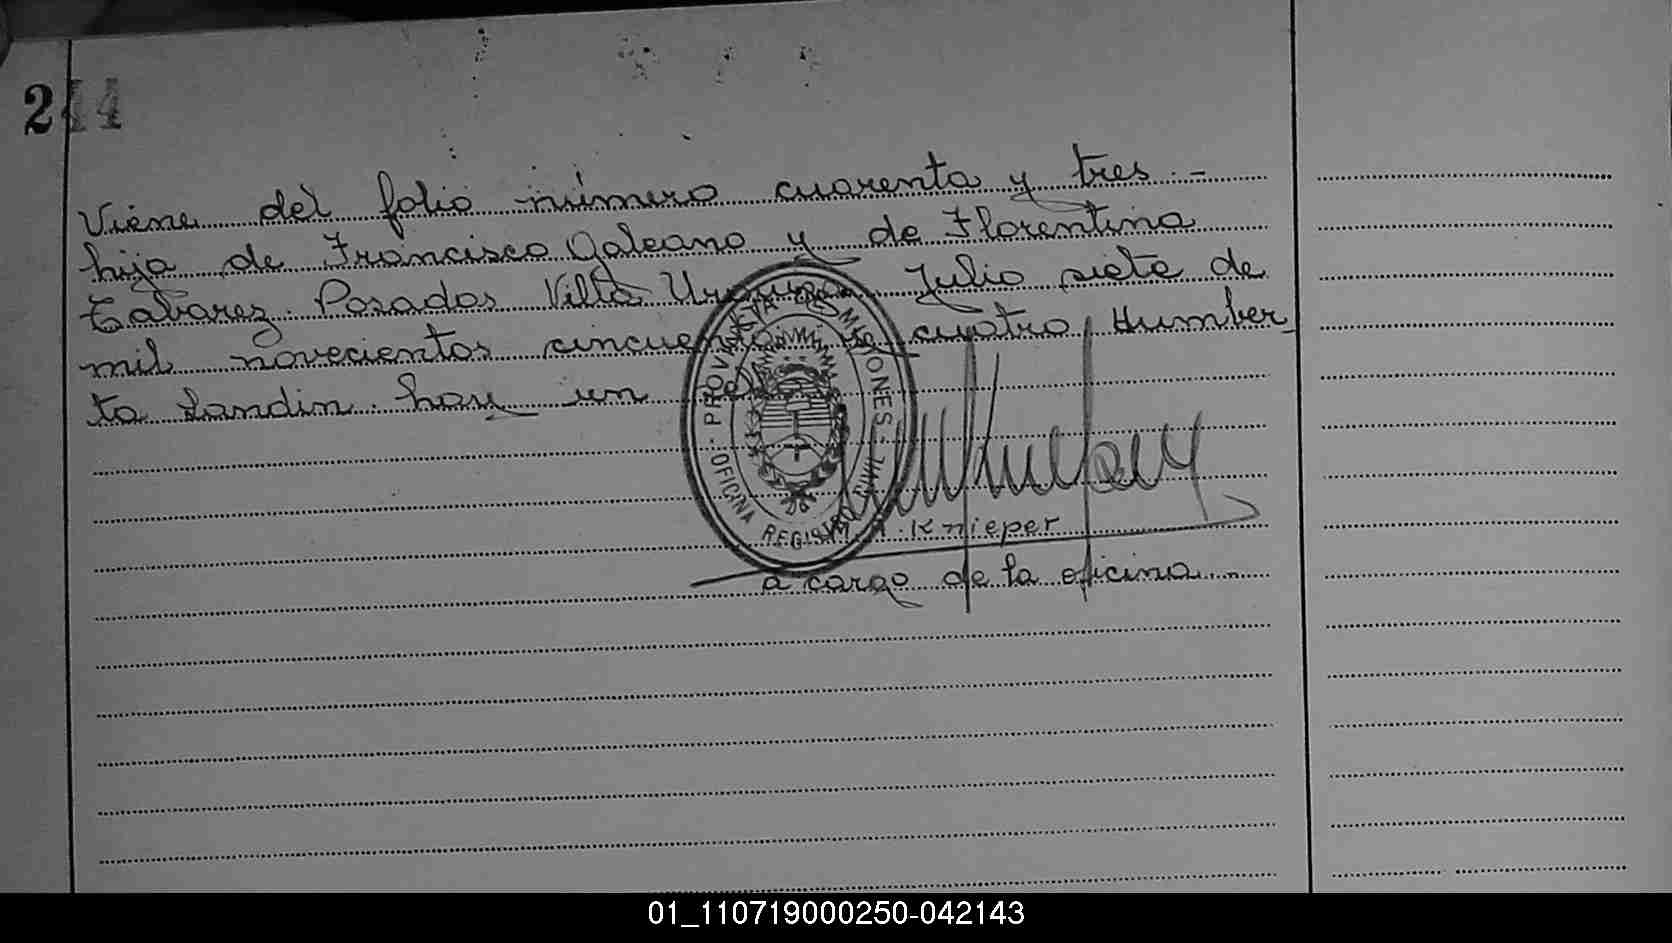 244
Viene del folio número cuarenta y tres.-
hija de Francisco Galeano y de Florentina
Tabarez. Posadas Villa Urquiza Julio siete de
mil novecientos cincuenta y cuatro Humber
to Landin. hay un
PROVINCIA DE MISIONES
OFICINA REGISTRO
A. Knieper
a cargo de la oficina.-
01_110719000250-042143